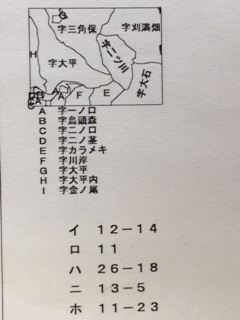 字三角保
字刈満畑
字一ツ川
H
字大平
字大石
A
F
E
A 字一ノ口
B 字烏頭森
C 字二ノ口
D 字二ノ茎
E 字カラメキ
F 字川岸
G 字大平
H 字大平内
I 字金ノ尾
イ 12-14
ロ 11
ハ 26-18
ニ 13-5
ホ 11-23